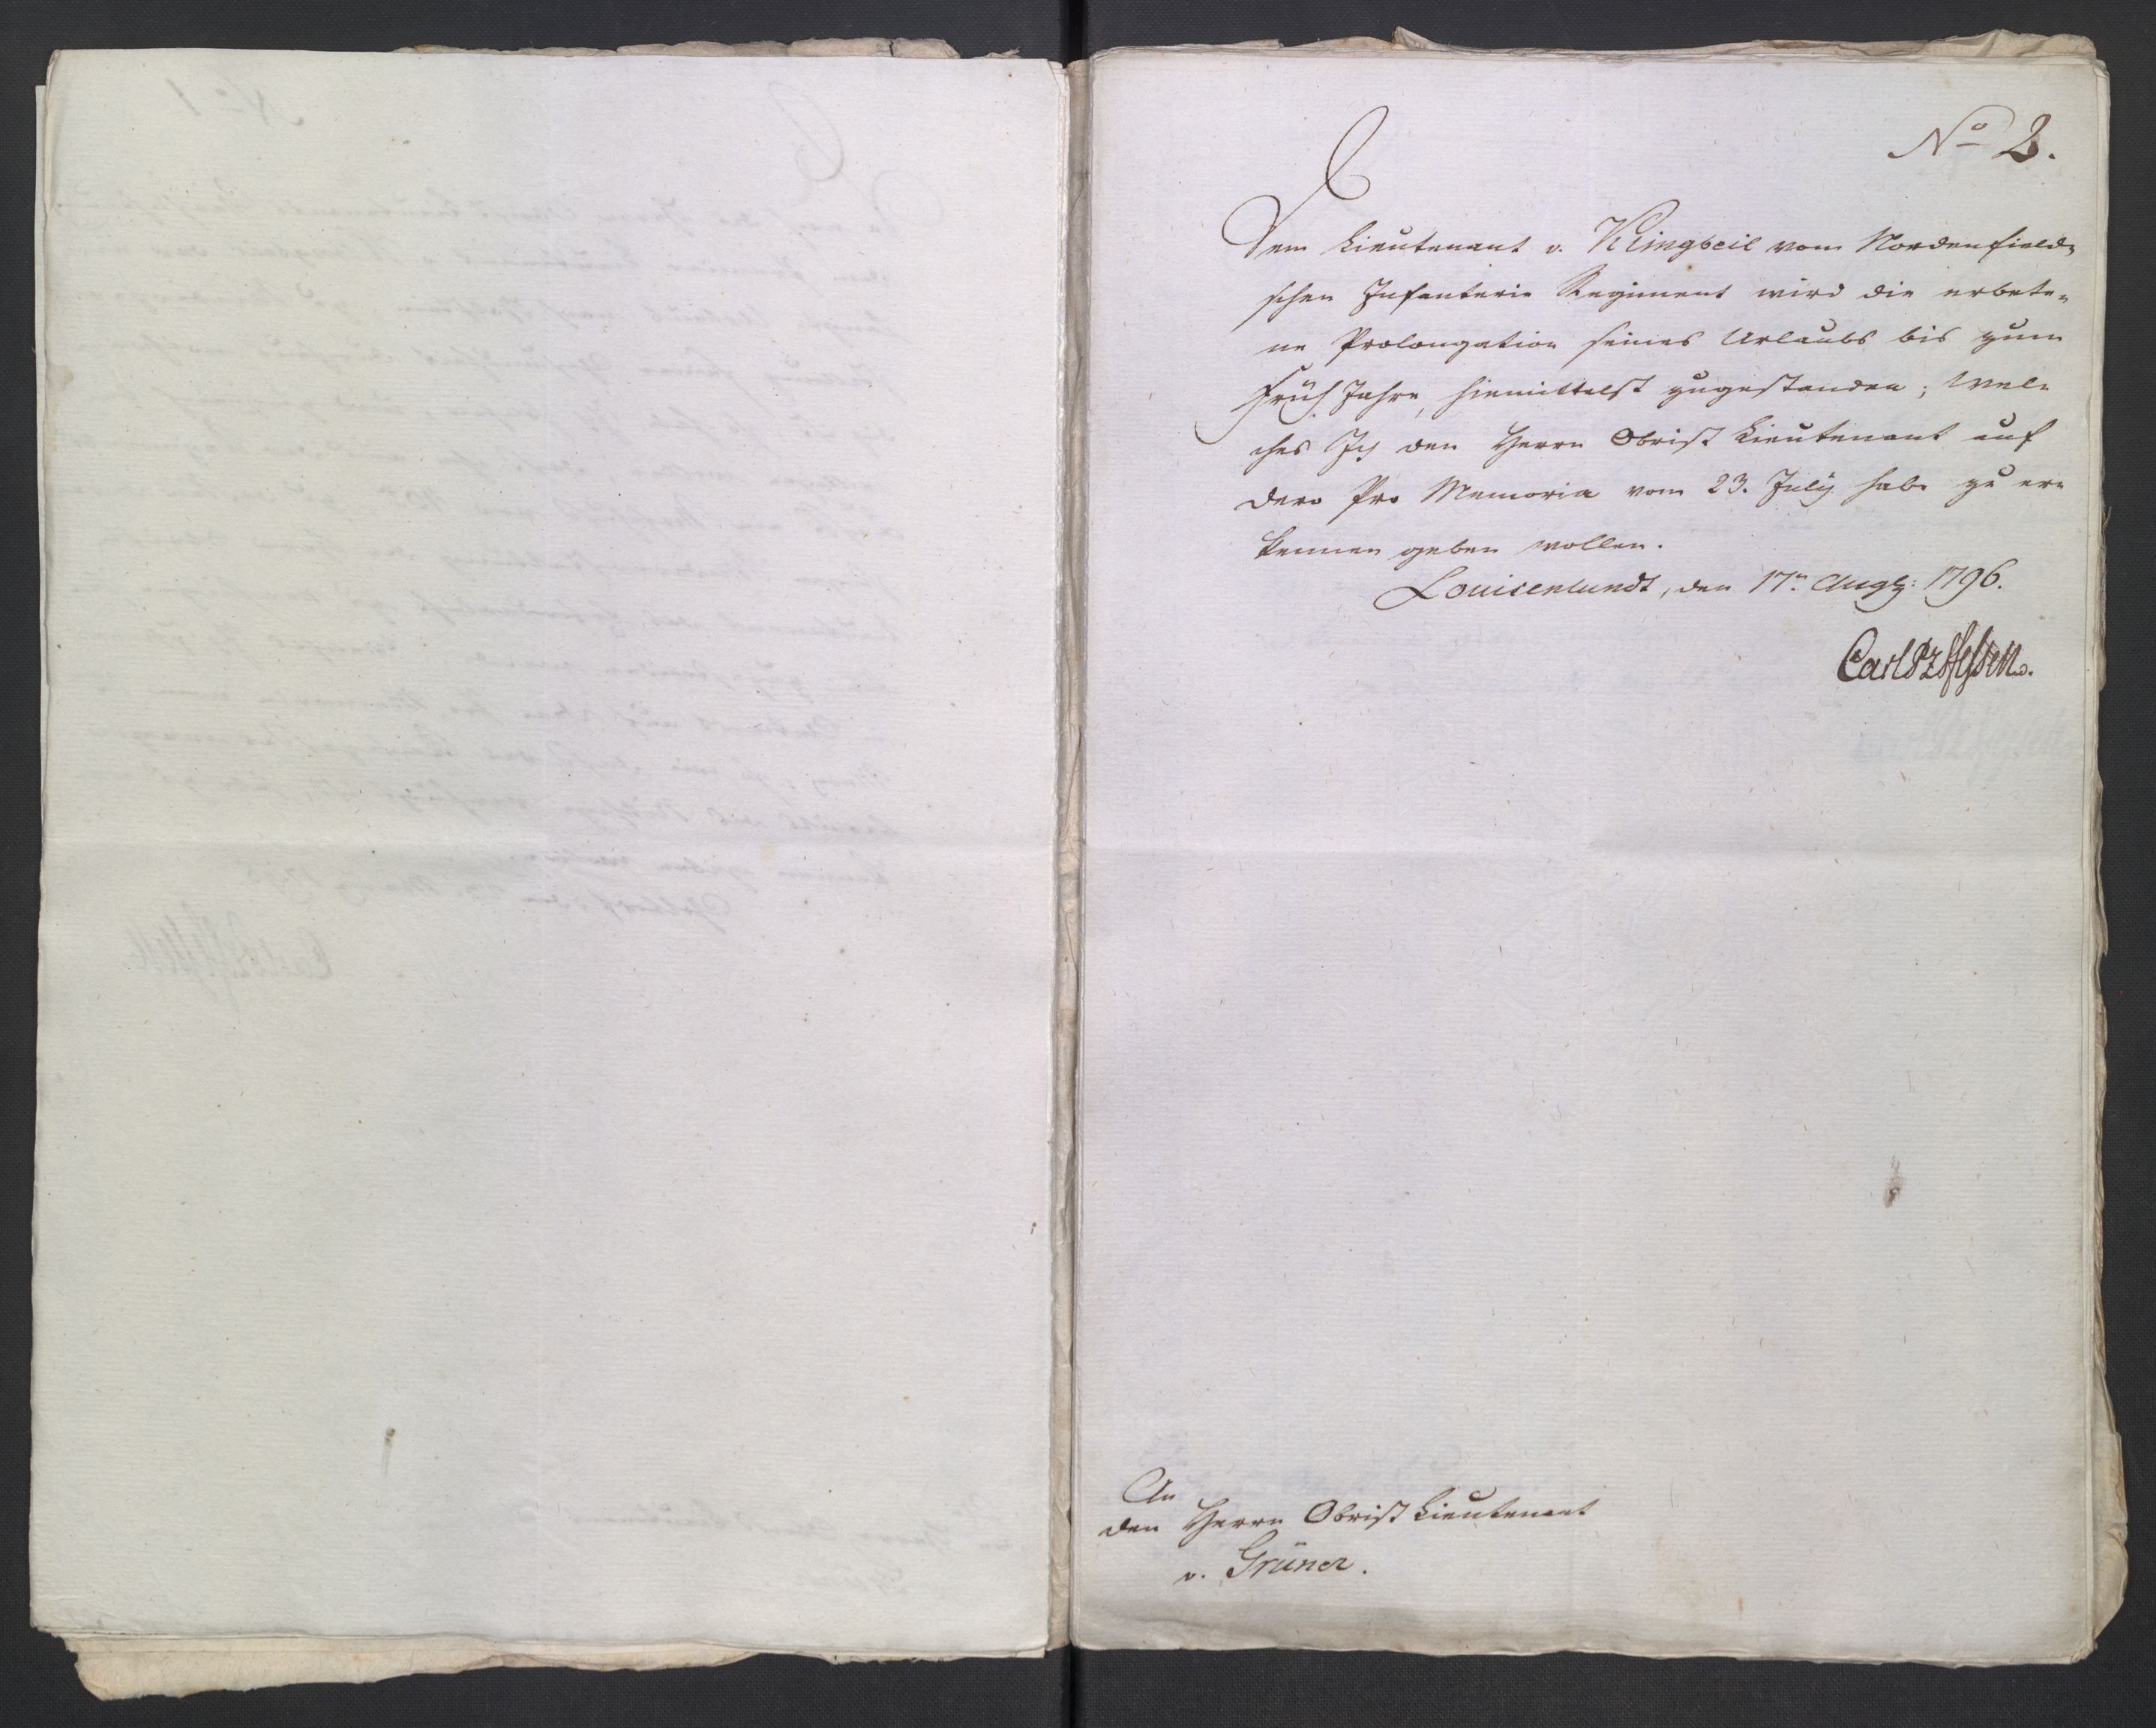 No 2.
Dem Lieutenant v. Klingbeil vom Nordenfield-
schen Infanterie Regiment wird die erbete-
ne Prolongation seines Urlaubs bis zum
Früh Jahre, hiemittelst zugestanden; Wel-
ches Ich den Herrn Obrist Lieutenant auf
dero Pro Memoria vom 23. July habe zu er-
kennen geben wollen.
Louisenlundt, den 17n Augs: 1796.
Carl Pz Hessen.
An
den Herrn Obrist Lieutenant
v. Grüner.